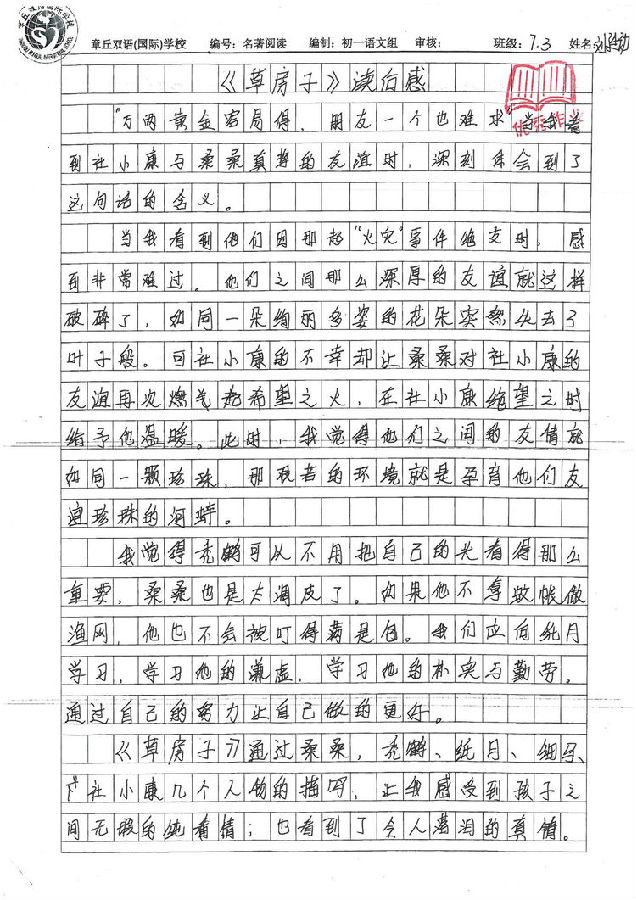 章丘双语(国际)学校 编号：名著阅读 编制：初一语文组 审核： 班级：7.3 姓名：刘
《草房子》读后感
"万两黄金容易得，朋友一个也难求"当我看
到杜小康与桑桑真挚的友谊时，深刻体会到了
这句话的含义。
当我看到他们因那起"火灾"事件绝交时，感
到非常难过。他们之间那么深厚的友谊就这样
破碎了，如同一朵绚丽多姿的花朵突然失去了
叶子般。可杜小康的不幸却让桑桑对杜小康的
友谊再次燃气起希望之火，在杜小康绝望之时
给予他温暖。此时，我觉得他们之间的友情就
如同一颗珍珠，那艰苦的环境就是孕育他们友
谊珍珠的河蚌。
我觉得秃鹤可以不用把自己的光看得那么
重要，桑桑也是太淘皮了。如果他不拿蚊帐做
渔网，他也不会被叮得满是包。我们应向纸月
学习，学习他的谦虚，学习他的朴实与勤劳。
通过自己的努力让自己做的更好。
《草房子》通过桑桑，秃鹤、纸月、细马、
杜小康几个人物的描写，让我感受到孩子之
间无暇的纯有情；也看到了令人落泪的真情。